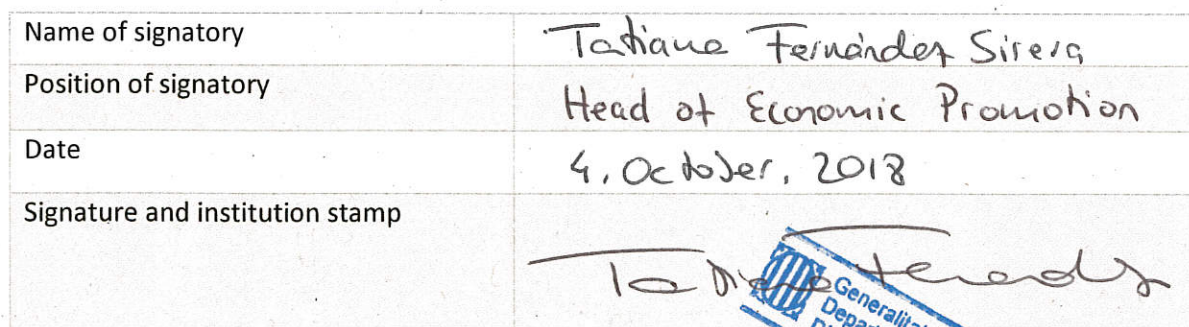 Name of signatory
Tatiana Fernández Sirera
Position of signatory
Head of Economic Promotion
Date
4, October, 2018
Signature and institution stamp
Tatiana Fernández
Generalitat